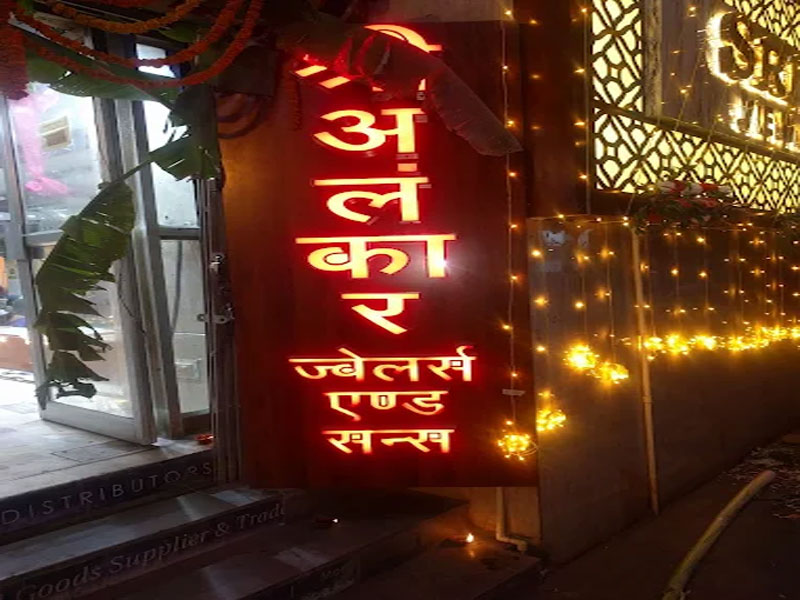 श्री
अ
लं
का
र
ज्वेलर्स
एण्ड
सन्स
DISTRIBUTORS
Goods Supplier & Trade